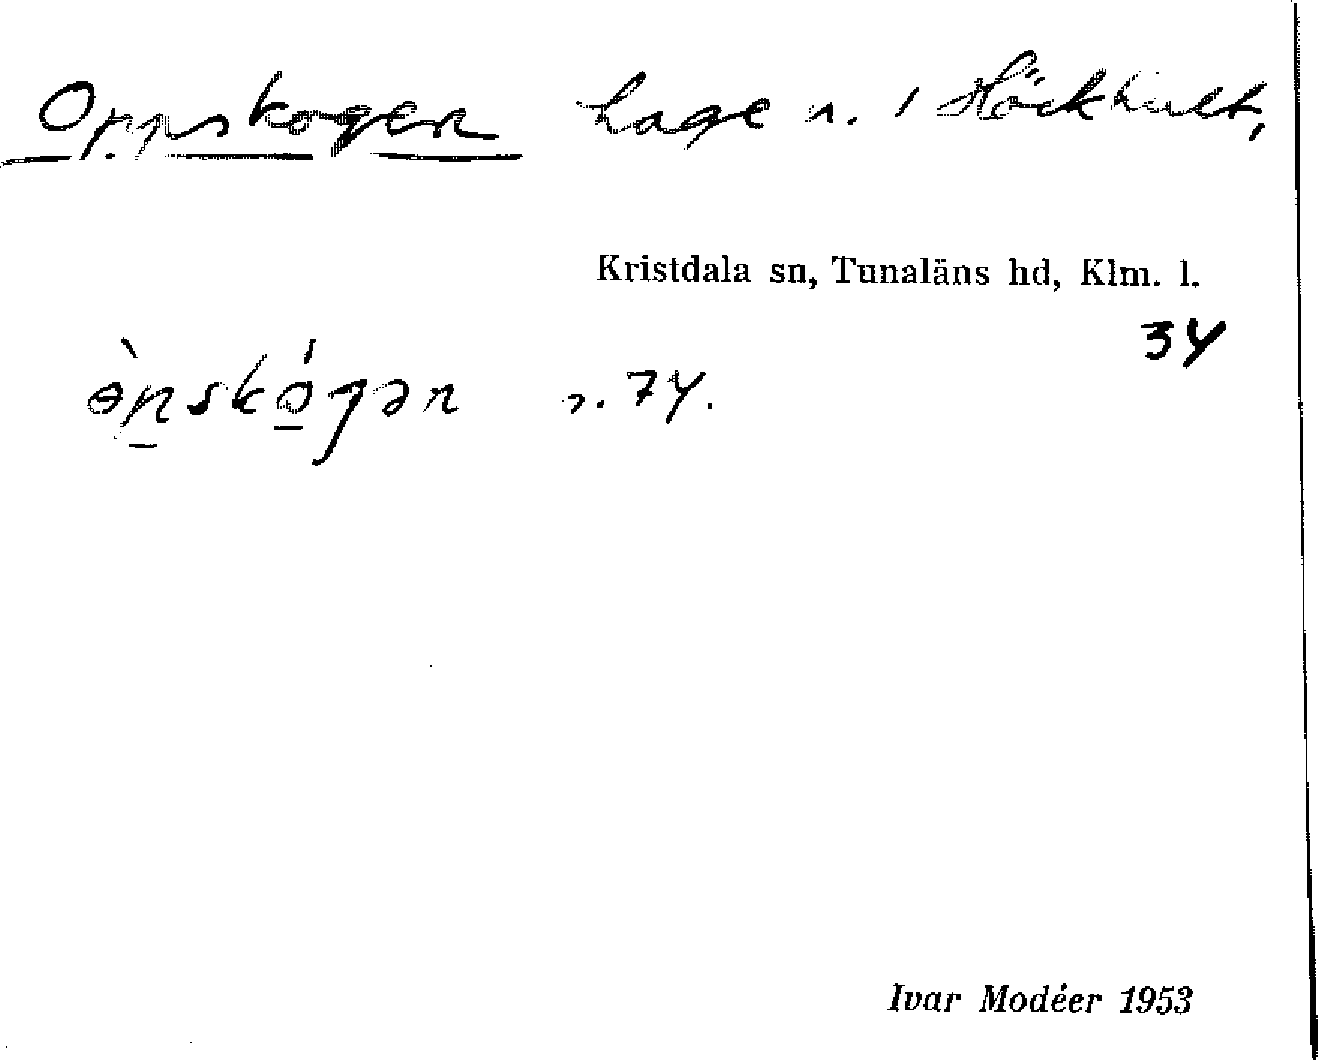 Oppskogen hage n. i Höckhult,
Kristdala sn, Tunaläns hd, Klm. l.
34
n. 74.
Ivar Modéer 1953